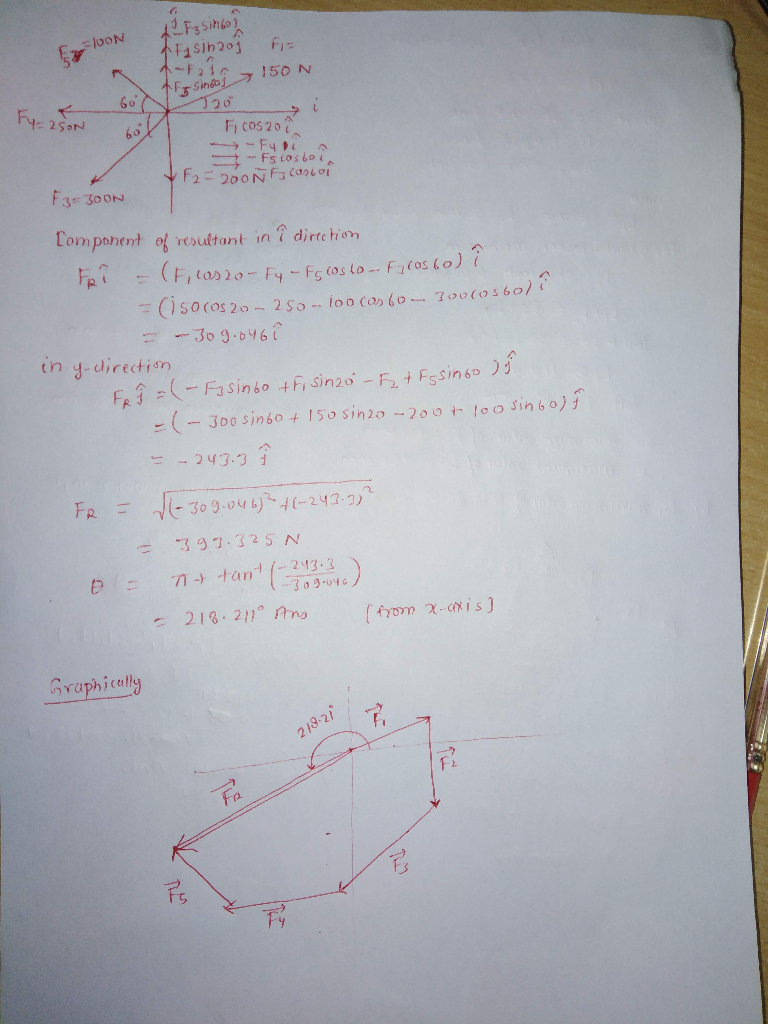 ĵ
-F₃ sin60 ĵ
F₁ sin20 ĵ
-F₂ ĵ
F₅ sin60 ĵ
F₅ = 100N
F₁ =
150 N
60°
20°
i
F₄ = 250N
60°
F₁ cos20 î
-F₄ î
-F₅ cos60 î
F₂ = 200N
F₃ cos60 î
F₃ = 300N
Component of resultant in î direction
F_R î = (F₁ cos20 - F₄ - F₅ cos60 - F₃ cos60) î
= (150 cos20 - 250 - 100 cos60 - 300 cos60) î
= -309.046 î
in y-direction
F_R ĵ = (-F₃ sin60 + F₁ sin20° - F₂ + F₅ sin60) ĵ
= (-300 sin60 + 150 sin20 - 200 + 100 sin60) ĵ
= -243.3 ĵ
F_R = √(-309.046)² + (-243.3)²
= 393.325 N
θ = π + tan⁻¹ (-243.3 / -309.046)
= 218.211° Ans [from x-axis]
Graphically
218.21°
F⃗₁
F⃗₂
F⃗_R
F⃗₃
F⃗₅
F⃗₄